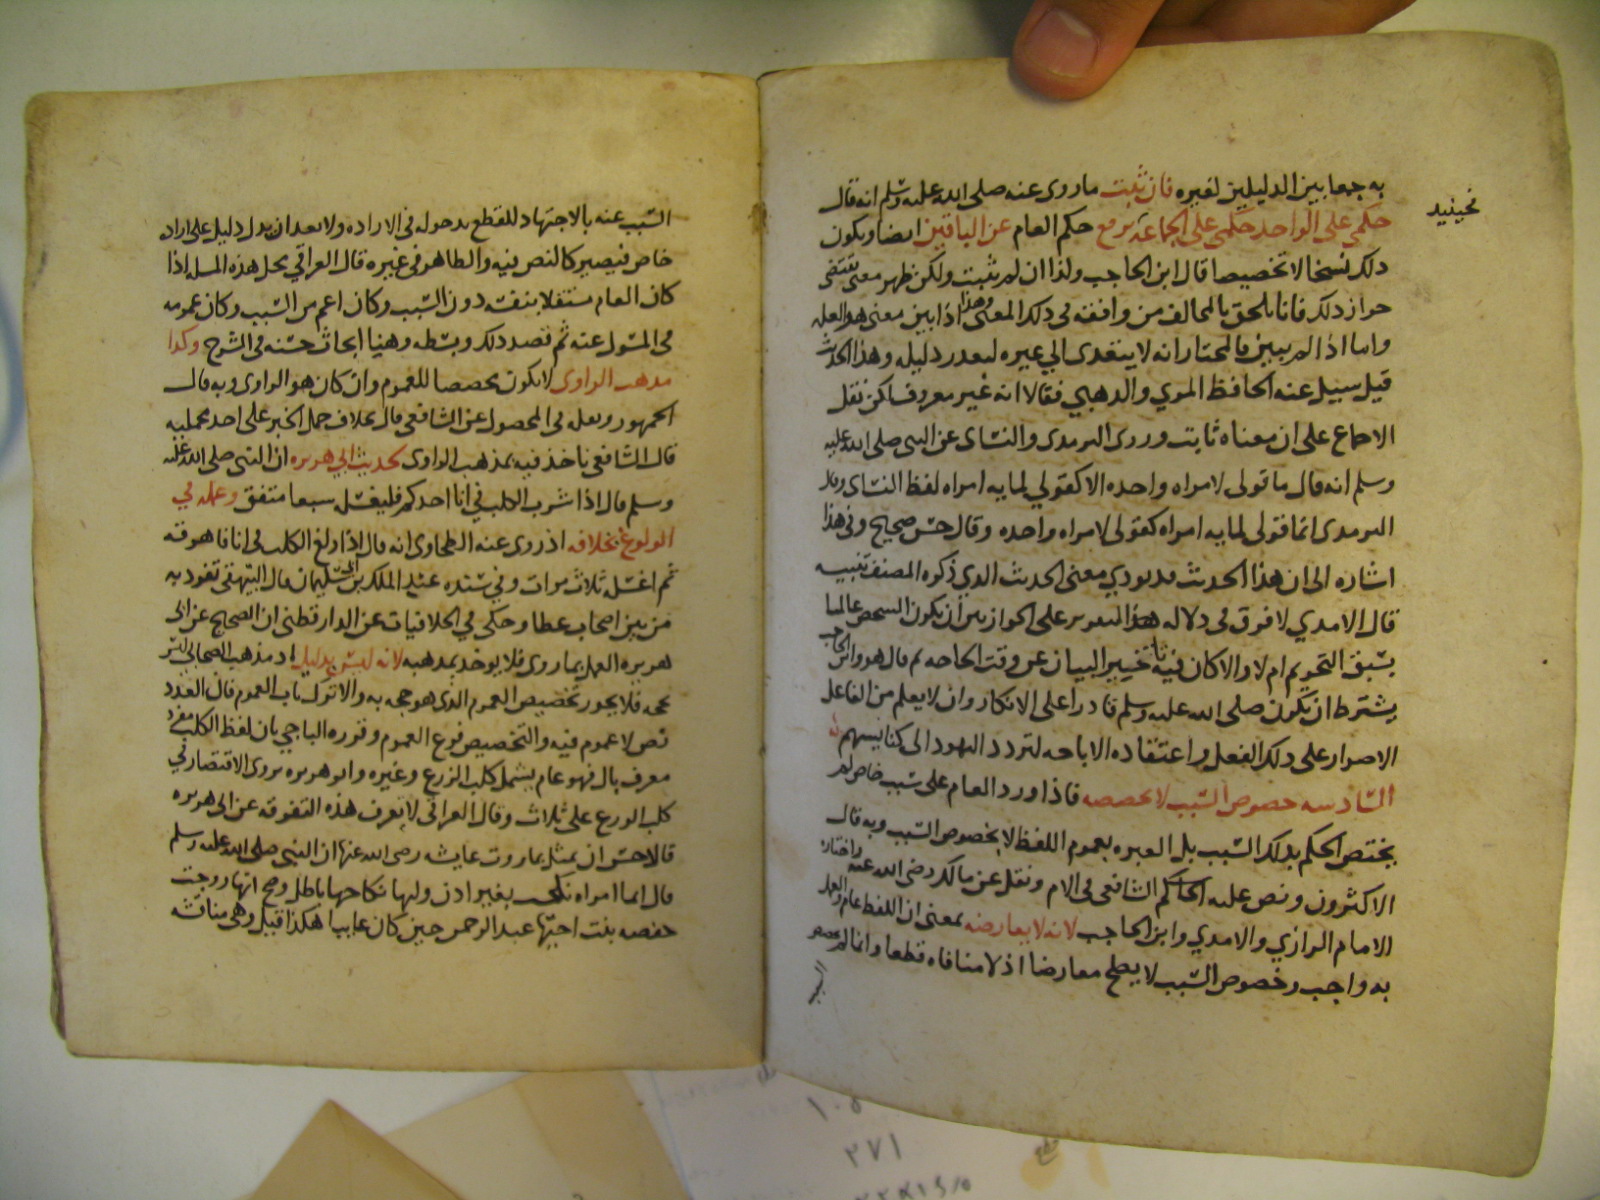 به جمعا بين الدليلين لغيره فان ثبت ما روى عنه صلى الله عليه وسلم انه قال
فحينئذ
حكمي على الواحد حكمي على الجماعة يرفع حكم العام عن الباقين ايضا ويكون
ذلك نسخا لا تخصيصا قال ابن الحاجب وكذا ان لم يثبت ولكن ظهر معنى يقتضي
جواز ذلك فانا نلحق بالمخالف من وافقه في ذلك المعنى وهذا اذا بين معنى هو العلة
واما اذا لم يبين فالمختار انه لا يتعدى الى غيره لتعذر دليله وهذا الحديث
قيل سيل عنه الحافظ المزي والذهبي فقالا انه غير معروف لكن نقل
الاجماع على ان معناه ثابت وروى الترمذي والنساى عن النبى صلى الله عليه
وسلم انه قال ما قولى لامراه واحده الا كقولي لمايه امراه لفظ النساى وقال
الترمذى انما قولى لمايه امراه كقولى لامراه واحده وقال حسن صحيح وفي هذا
اشاره الى ان هذا الحديث قد يودي معنى الحديث الذي ذكره المصنف تنبيه
قال الامدي لا فرق فى دلاله هذا التقرير على الجواز بين ان يكون الشخص عالما
بسبق التحريم ام لا والا كان فيه تاخير البيان عن وقت الحاجه ثم قال هو وابن الحاجب
يشترط ان يكون صلى الله عليه وسلم قادرا على الانكار وان لا يعلم من الفاعل
الاصرار على ذلك الفعل واعتقاده الاباحه لتردد اليهود الى كنايسهم
السادسه خصوص السبب لا يخصصه فاذا ورد العام على سبب خاص لم
يختص الحكم بذلك السبب بل العبره بعموم اللفظ لا بخصوص السبب وبه قال
الاكثرون ونص عليه الشافعى فى الام ونقل عن مالك رضى الله عنه واختاره
الامام الرازي والامدي وابن الحاجب لانه لا يعارضه بمعنى ان اللفظ عام والعمل
به واجب وخصوص السبب لا يصلح معارضا اذ لا منافاه قطعا وانما لم
السبب
السبب عنه بالاجتهاد للقطع بدخوله فى الاراده ولا بعد ان يدل دليل على اراده
خاص فيصير كالنص فيه والظاهر فى غيره قال العراقي محل هذه المسله اذا
كان العام مستقلا بنفسه دون السبب وكان اعم من السبب وكان عمومه
فى المسول عنه ثم قصد ذلك وبسطه وهنا ابحاث حسنه فى الشرح وكذا
مذهب الراوى لا يكون مخصصا للعموم وان كان هو الراوى وبه قال
الجمهور ونقله فى المحصول عن الشافعى قال بخلاف حمل الخبر على احد محمليه
قال الشافعى ناخذ فيه بمذهب الراوى كحديث ابى هريره ان النبى صلى الله عليه
وسلم قال اذا شرب الكلب في انا احدكم فليغسل سبعا متفق وعمله في
الولوغ بخلافه اذ روى عنه الطحاوى انه قال اذا ولغ الكلب فى انا فاهرقه
ثم اغسل ثلاث مرات وفى سنده عبد الملك بن ابى سليمان قال البيهقى تفرد به
من بين اصحاب عطا وحكى في الخلافيات عن الدارقطنى ان الصحيح عن ابى
هريره العمل بما روى فلا يوخذ بمذهبه لانه ليس بدليل اذ مذهب الصحابي ليس
بحجه فلا يجوز تخصيص العموم الذى هو حجه به والا ترك ناب العموم فان العدد
نص لا عموم فيه والتخصيص فرع العموم وقرره الباجي بان لفظ الكلب مفرد
معرف بال فهو عام يشمل كلب الزرع وغيره وابو هريره يروى الاقتصار في
كلب الزرع على ثلاث وقال العراقى لا يعرف هذه التفرقه عن ابى هريره
فالاحسن ان يمثل بما روت عايشه رضى الله عنها ان النبى صلى الله عليه وسلم
قال ايما امراه نكحت بغير اذن وليها نكاحها باطل وصح انها زوجت
حفصه بنت اخيها عبد الرحمن حين كان غايبا هكذا قيل وفى مناقشه
١٠٥
٢٧١